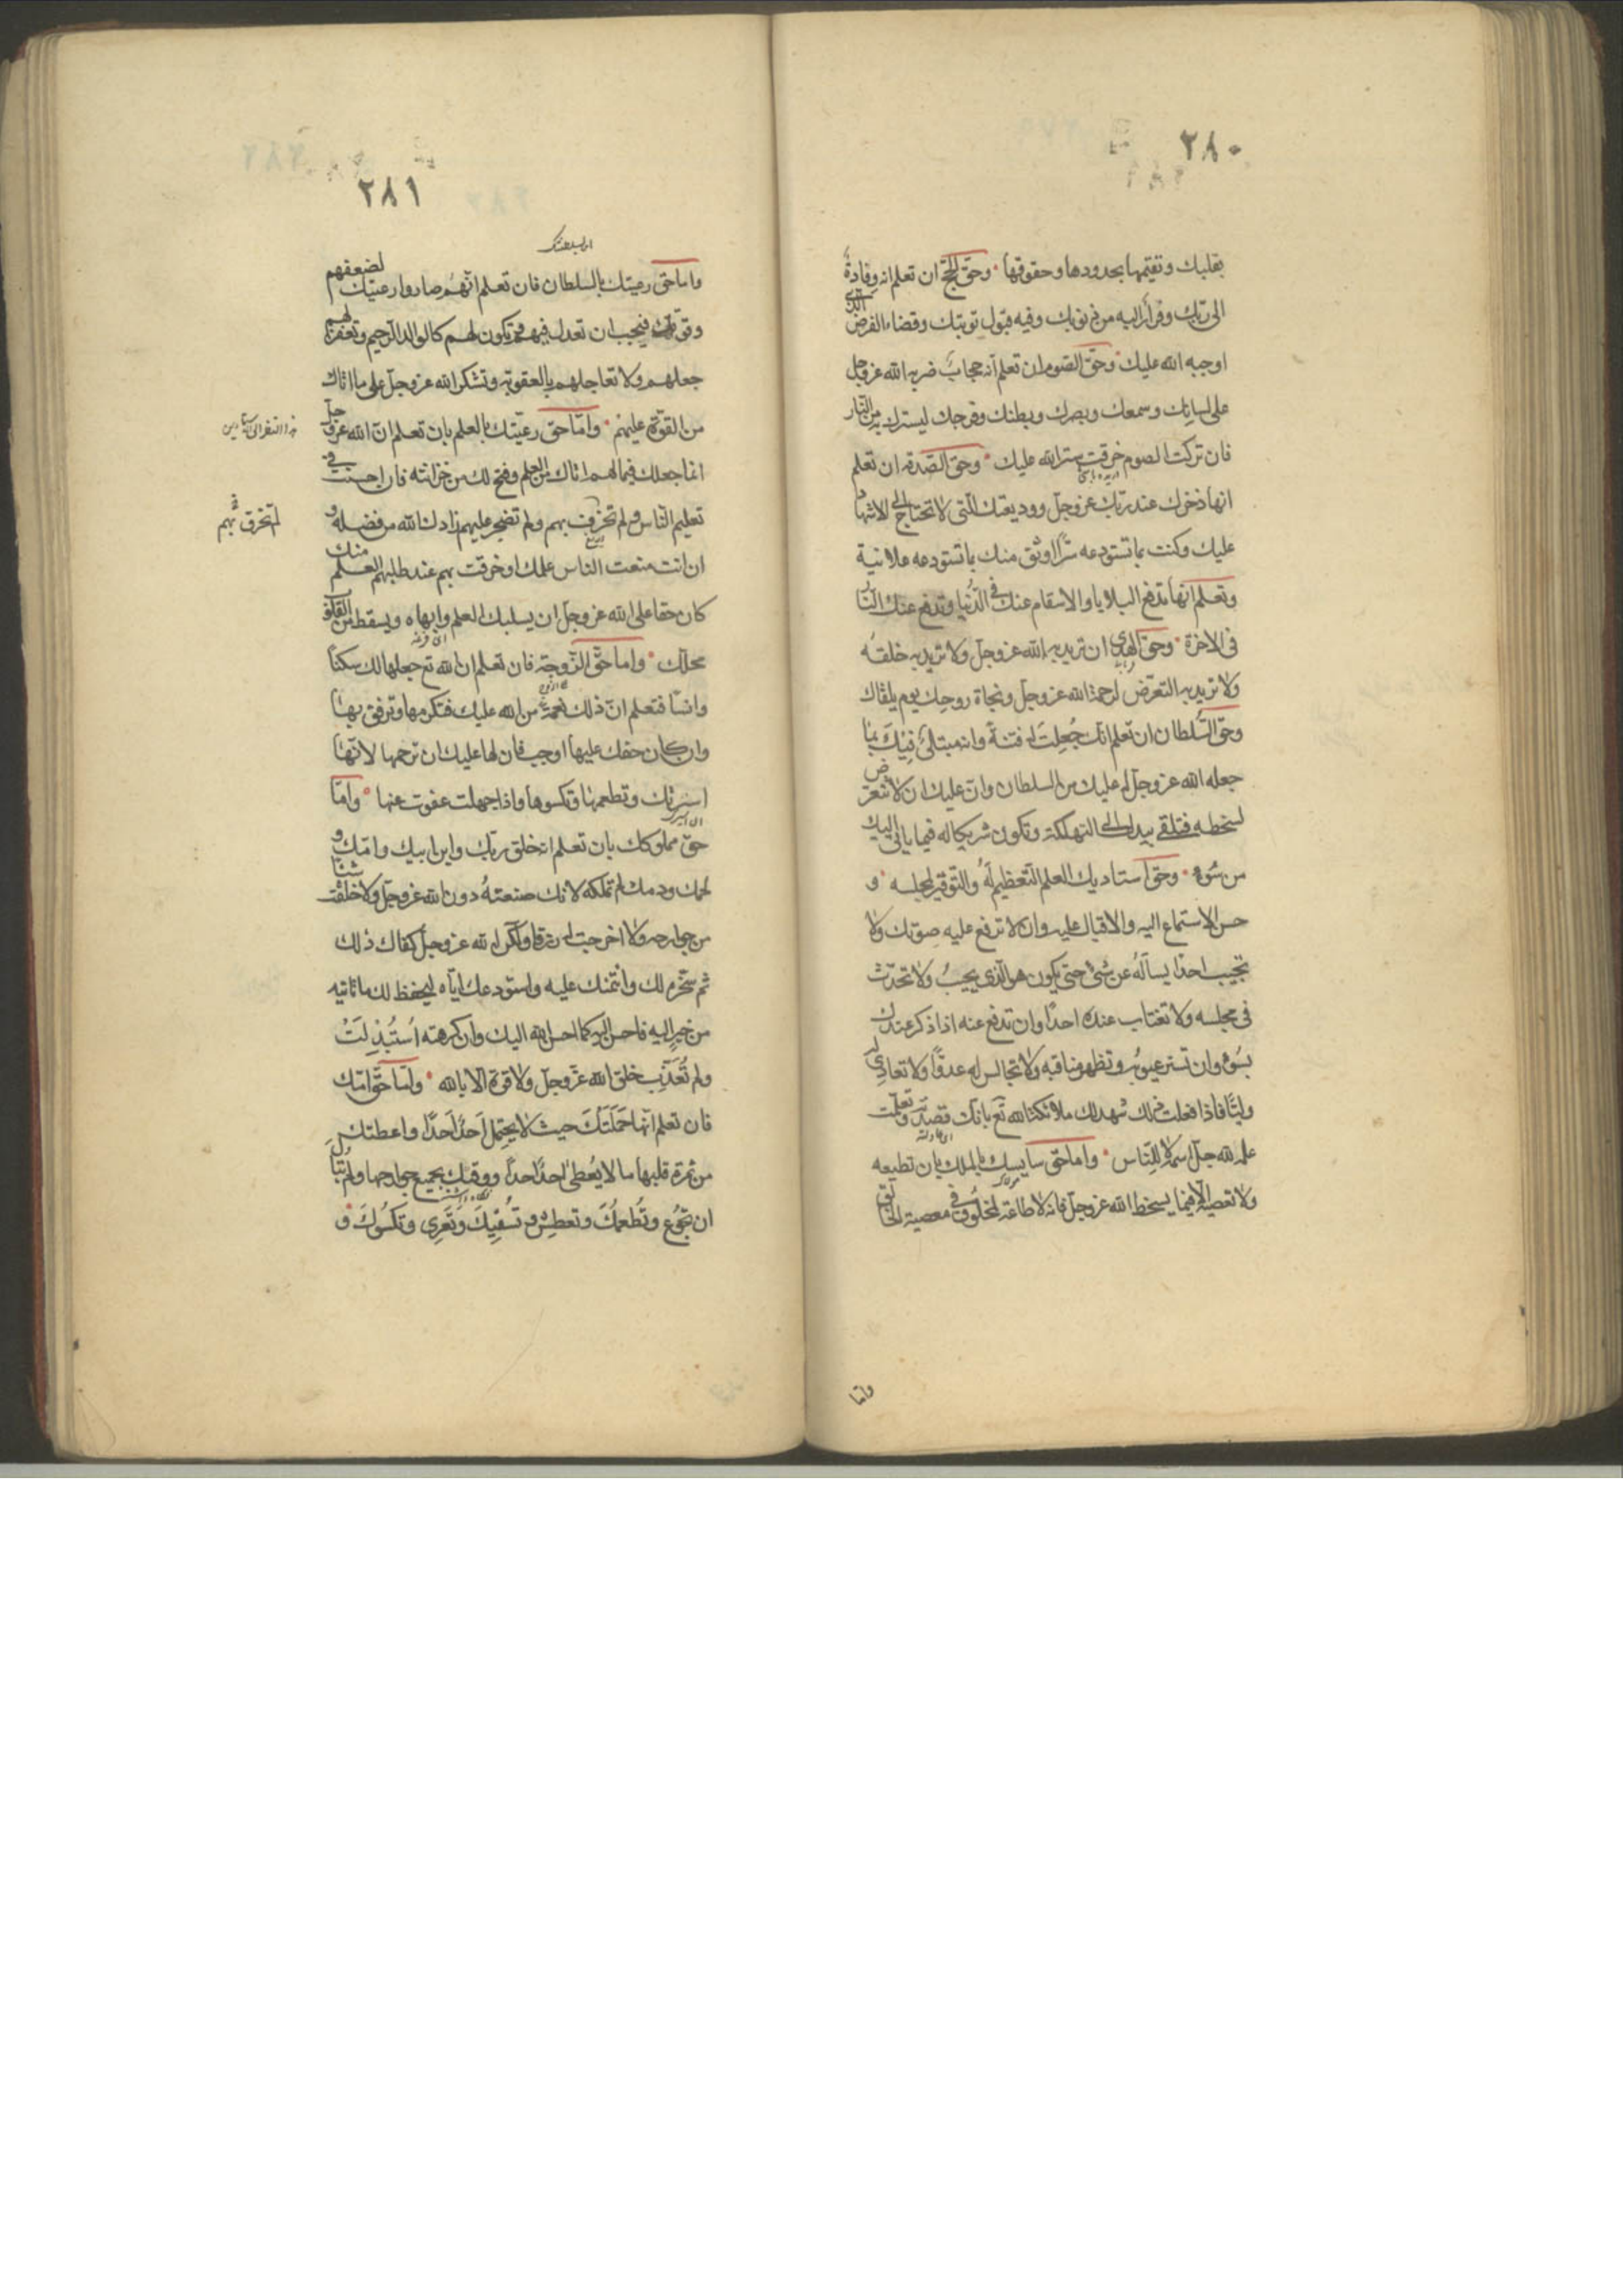 ٢٨٠
بقلبك وتقيمها بحدودها وحقوقها وحق الحج ان تعلم انه وفادة
الى ربك وفرار اليه من ذنوبك وفيه قبول توبتك وقضاء الفرض الذى
اوجبه الله عليك وحق الصوم ان تعلم انه حجاب ضربه الله عز وجل
على لسانك وسمعك وبصرك وبطنك وفرجك ليسترك به من النار
فان تركت الصوم خرقت ستر الله عليك وحق الصدقة ان تعلم
انها ذخرك عند ربك عز وجل ووديعتك التى لا تحتاج الى الاشهاد
عليك وكنت بما تستودعه سرا اوثق منك بما تستودعه علانية
وتعلم انها تدفع البلايا والاسقام عنك فى الدنيا وتدفع عنك النار
فى الاخرة وحق الهدى ان تريد به الله عز وجل ولا تريد به خلقه
ولا تريد به التعرض لرحمة الله عز وجل ونجاة روحك يوم يلقاك
وحق السلطان ان تعلم انك جُعِلتَ له فتنة وانه مبتلىً فيك بما
جعله الله عز وجل له عليك من السلطان وان عليك ان لا تتعرض
لسخطه فتلقى بيدك الى التهلكة وتكون شريكا له فيما ياتى اليك
من سُوء وحق استاديك العلم التعظيم لهُ والتوقير لمجلسه و
حسن الاستماع اليه والاقبال عليه وان لا ترفع عليه صوتك ولا
تجيب احدا يسالهُ عن شئ حتى يكون هو الذى يجيبُ ولا تحدث
فى مجلسه ولا تغتاب عنده احدا وان تدفع عنه اذا ذكر عندك
بسُوء وان تستر عيوبُه وتظهر مناقبه ولا تجالس له عدوًّا ولا تعادى له
وليًّا فاذا فعلت ذلك شهد لك ملائكة الله تع بانك قصدته وتعلمت
علمه لله جل اسمه لا للناس واما حق سايسك بالملك بان تطيعه
ولا تعصيه الا فيما يسخط الله عز وجل فانه لا طاعة لمخلوق فى معصية الخالق
واما
٢٨١
واما حق رعيتك بالسلطان فان تعلم انهُم صاروا رعيتك لضعفهم
وقوتك فيجب ان تعدل فيهم وتكون لهم كالوالد الرحيم وتغفر لهم
جهلهم ولا تعاجلهم بالعقوبة وتشكر الله عز وجل على ما اتاك
من القوة عليهم واما حق رعيتك بالعلم بان تعلم ان الله عز وجل
انما جعلك قيما لهم اتاك من العلم وفتح لك من خزانته فان احسنت فى
تعليم الناس ولم تخرق بهم ولم تضجر عليهم زادك الله من فضله و
لم تخرق بهم
ان انت منعت الناس علمك او خرقت بهم عند طلبهم العلم منك
كان حقا على الله عز وجل ان يسلبك العلم وابهاه ويسقط من القلوب
محلك واما حق الزوجة فان تعلم ان الله تع جعلها لك سكنا
وانسا فتعلم ان ذلك نعمة من الله عليك فتكرمها وترفق بها
وان كان حقك عليها اوجب فان لها عليك ان ترحمها لانها
اسيرتك وتطعمها وتكسوها واذا جهلت عفوت عنها واما
حق مملوكك بان تعلم انه خلق ربك وابن ابيك وامك و
لحمك ودمك لم تملكه لانك صنعتهُ دون الله عز وجل ولا خلقت شيئا
من جوارحه ولا اخرجت له رزقا ولكن الله عز وجل كفاك ذلك
ثم سخره لك وائتمنك عليه واستودعك اياه ليحفظ لك ما تاتيه
من خير اليه فاحسن اليه كما احسن الله اليك وان كرهته اُستُبذِلَتُ
ولم تُعَذِّب خلق الله عز وجل ولا قوة الا بالله واما حق امك
فان تعلم انها حَمَلَتكَ حيث لا يحتمل اَحدٌ اَحدًا واعطتك
من ثمرة قلبها ما لا يُعطى احدٌ احدًا ووقتك بجميع جوارحها ولم تُبال
ان تجوُع وتُطعمُكَ وتعطش وتسقيكَ وتَعَرى وتكسُوكَ و